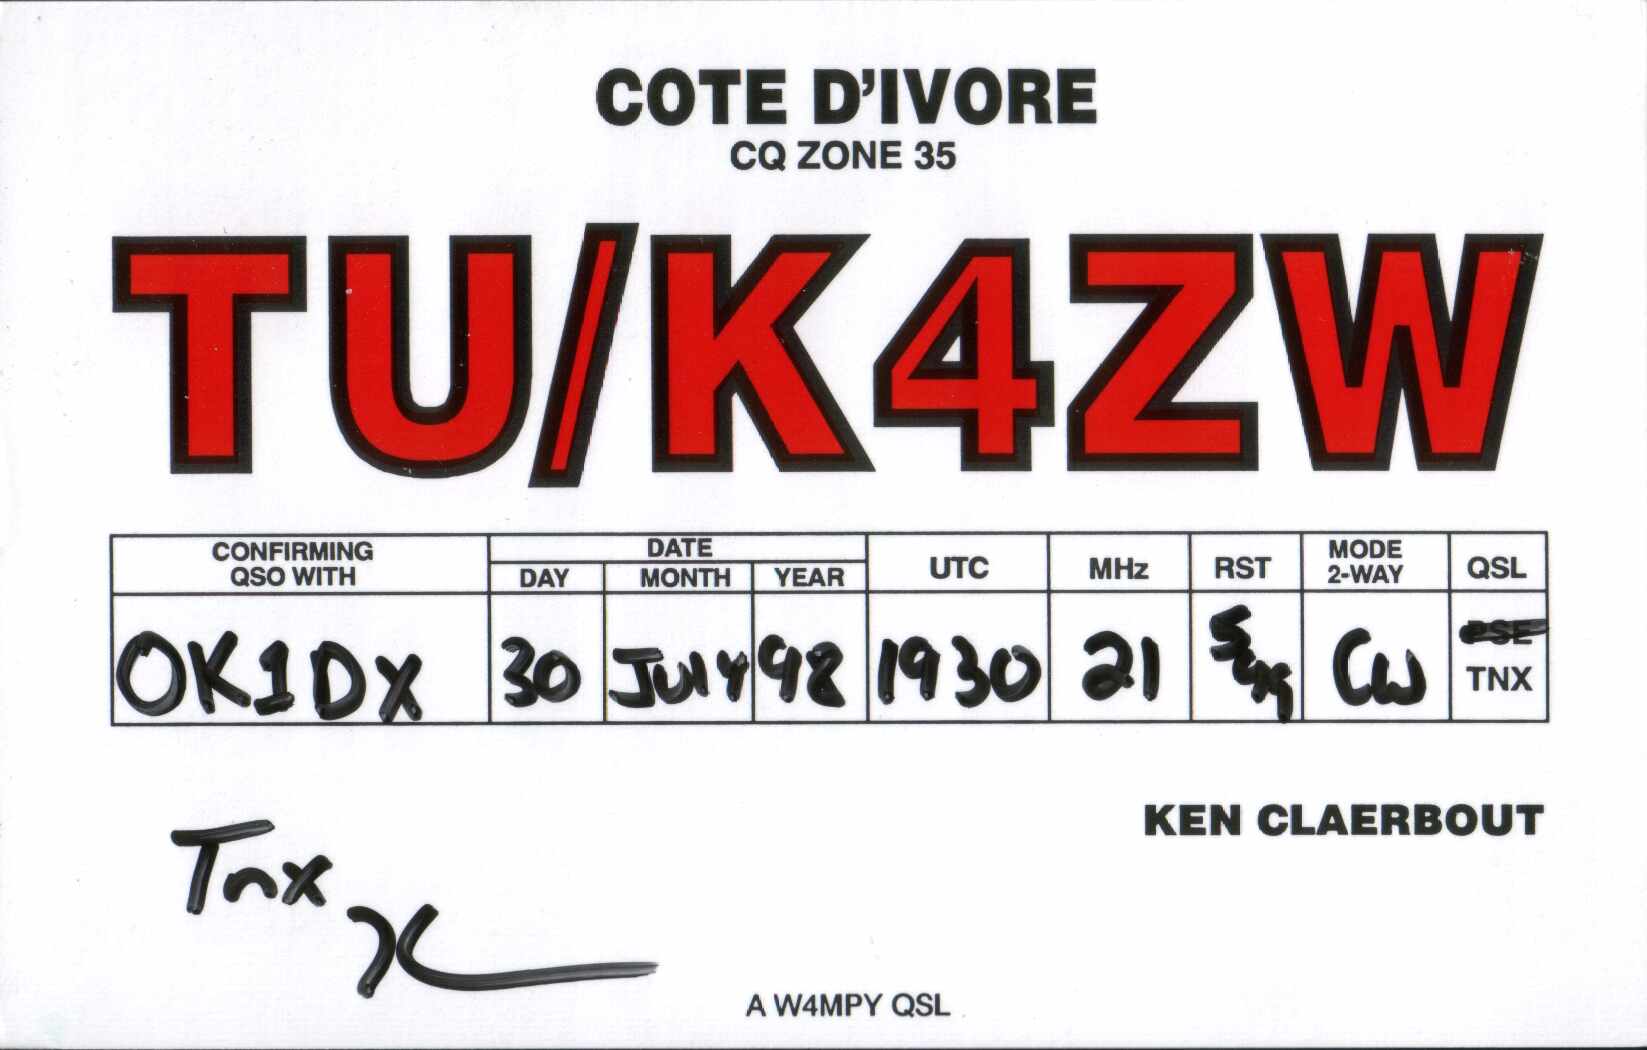 COTE D'IVORE
CQ ZONE 35
TU/K4ZW
CONFIRMING QSO WITH DATE DAY MONTH YEAR UTC MHz RST MODE 2-WAY QSL
OK1DX 30 JULY 98 1930 21 599 CW PSE TNX
KEN CLAERBOUT
Tnx
A W4MPY QSL